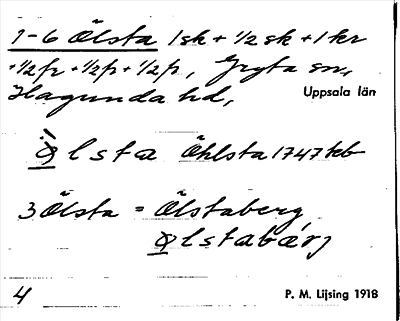 1-6 Ölsta 1sk + 1/2 sk + 1 kr
+ 1/2 fr + 1/2 fr + 1/2 fr, Gryta sn,
Hagunda hd, Uppsala län
Ölsta Öhlsta 1747 kb
3 Ölsta = Ölstaberg
Ölstabärj
4 P. M. Lijsing 1918